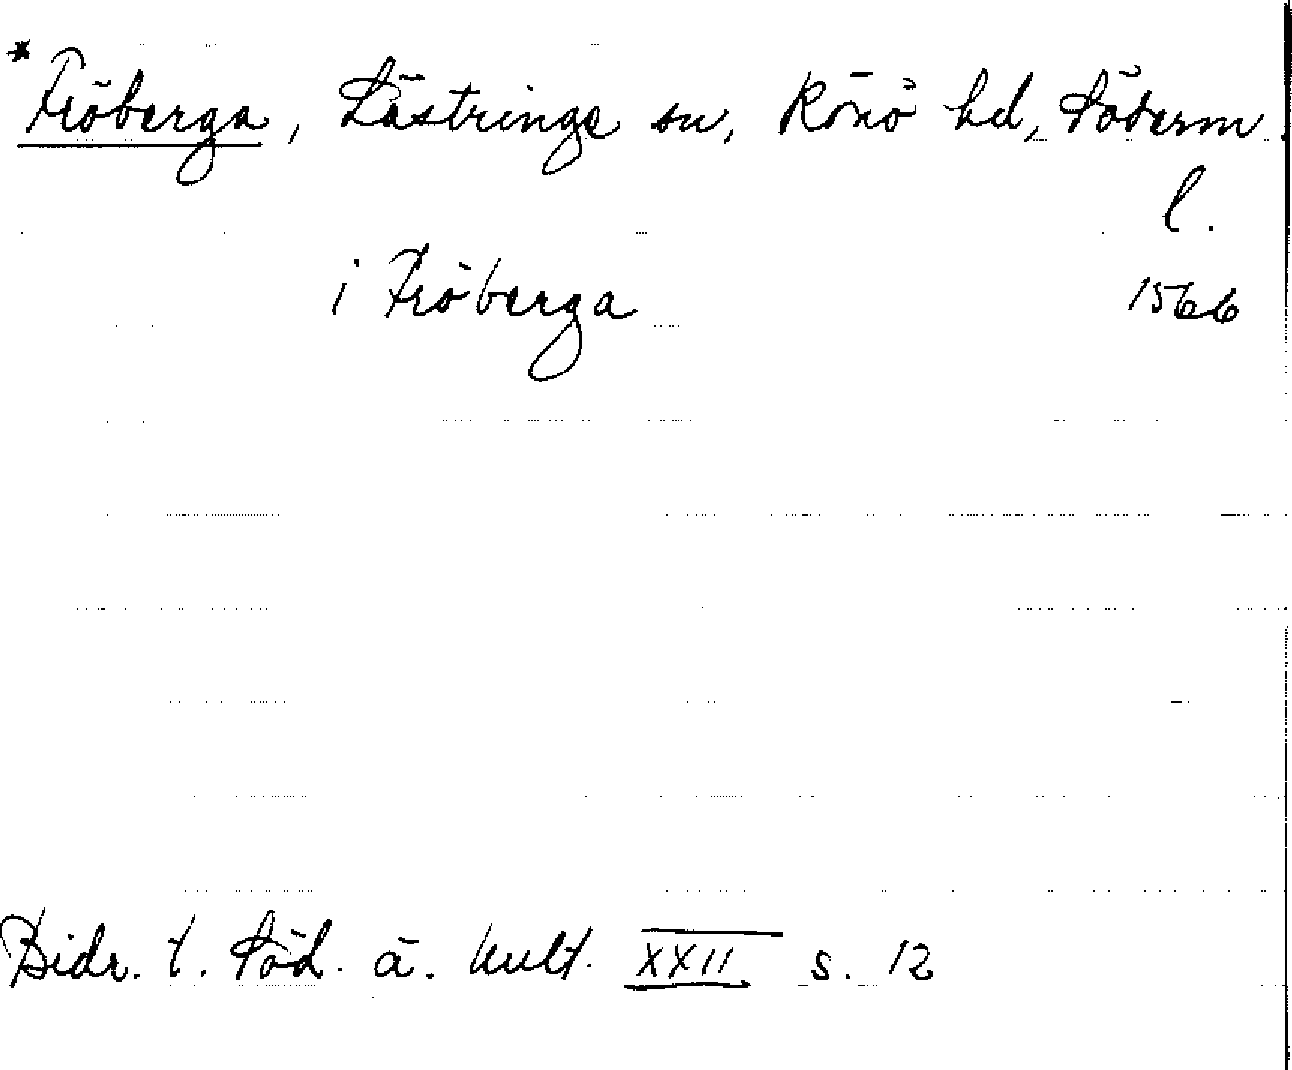 *Fröberga, Lästringe sn, Rönö hd, Söderm.
l.
i Fröberga 1566
Bidr. t. Söd. ä. kult. XXII s. 12